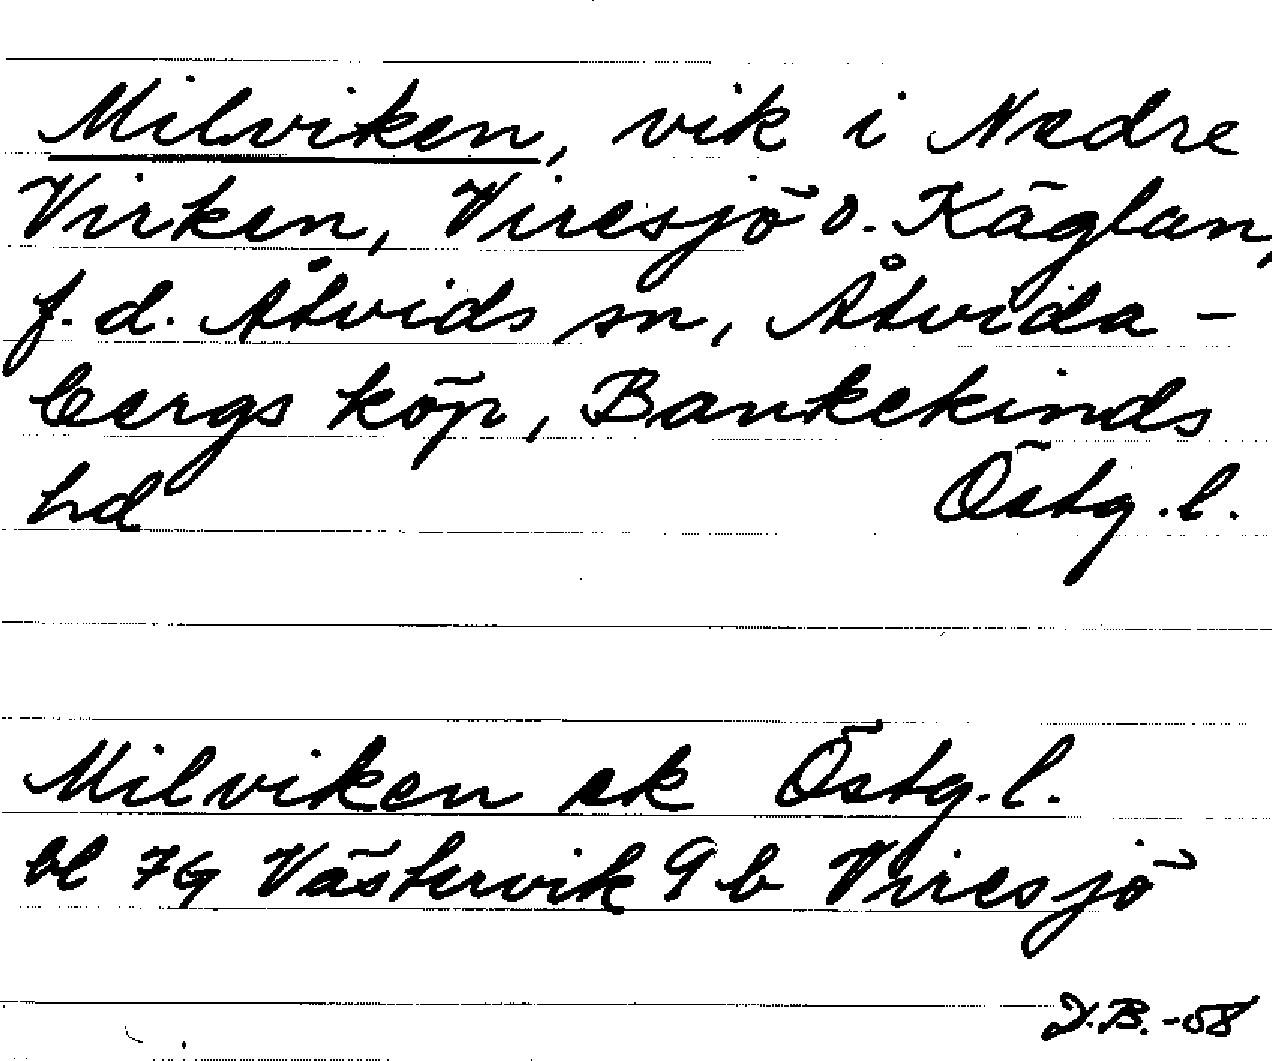 Milviken, vik i Nedre
Virken, Viresjö o. Käglan,
f.d. Åtvids sn, Åtvida-
bergs köp, Bankekinds
hd Östg.l.
Milviken ek Östg.l.
bl 7G Västervik 9b Viresjö
D.B. -58